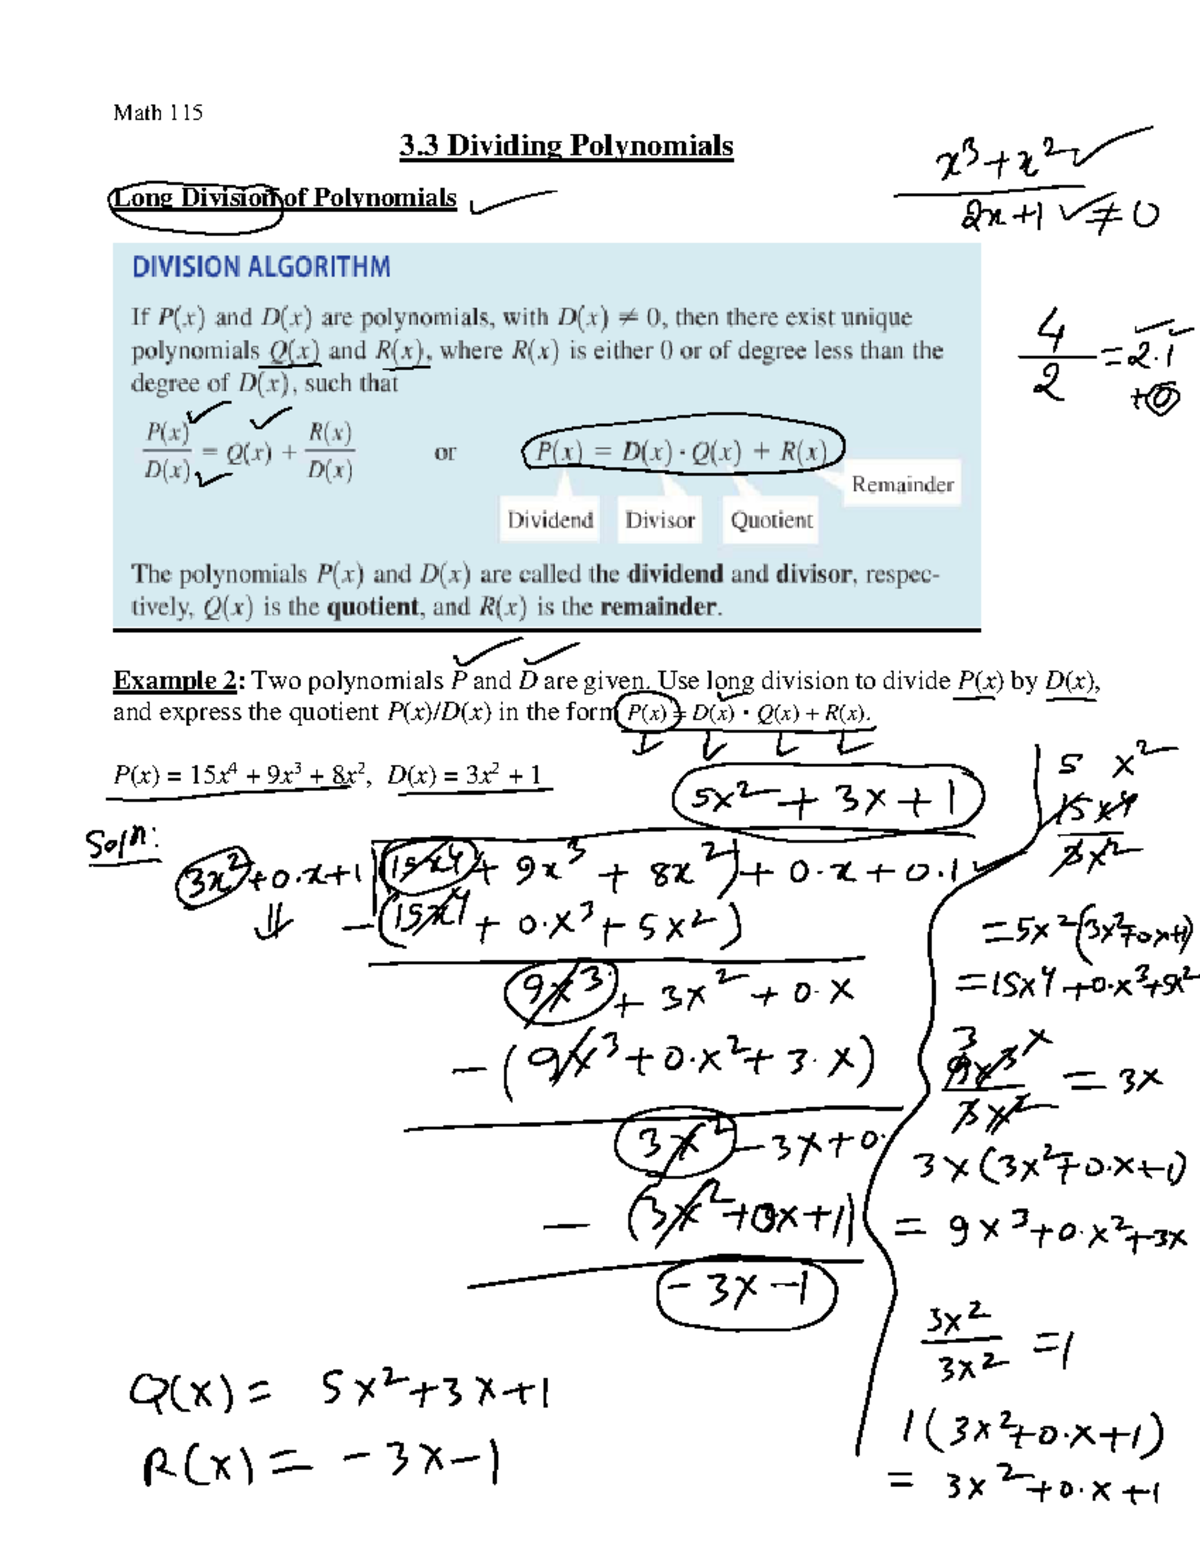 Math 115
3.3 Dividing Polynomials
x³ + x² ✓
2x+1 ✓ ≠ 0
Long Division of Polynomials ✓
DIVISION ALGORITHM
If P(x) and D(x) are polynomials, with D(x) ≠ 0, then there exist unique
polynomials Q(x) and R(x), where R(x) is either 0 or of degree less than the
degree of D(x), such that
4/2 = 2·1
+0
P(x)/D(x) = Q(x) + R(x)/D(x) or P(x) = D(x) · Q(x) + R(x)
Remainder
Dividend Divisor Quotient
The polynomials P(x) and D(x) are called the dividend and divisor, respec-
tively, Q(x) is the quotient, and R(x) is the remainder.
Example 2: Two polynomials P and D are given. Use long division to divide P(x) by D(x),
and express the quotient P(x)/D(x) in the form P(x) = D(x) · Q(x) + R(x).
P(x) = 15x⁴ + 9x³ + 8x², D(x) = 3x² + 1
5x² + 3x + 1
Soln:
3x²+0·x+1 (15x⁴ + 9x³ + 8x²) + 0·x + 0·1
-(15x⁴ + 0·x³ + 5x²)
9x³ + 3x² + 0·x
-(9x³ + 0·x² + 3·x)
3x² - 3x + 0·
-(3x² + 0x + 1)
-3x-1
Q(x) = 5x²+3x+1
R(x) = -3x-1
5 x²
15x⁴
3x²
= 5x²(3x²+0x+1)
= 15x⁴+0·x³+5x²
3 x
9x³/3x² = 3x
3x(3x²+0·x+1)
= 9x³+0·x²+3x
3x²/3x² = 1
1(3x²+0·x+1)
= 3x²+0·x+1